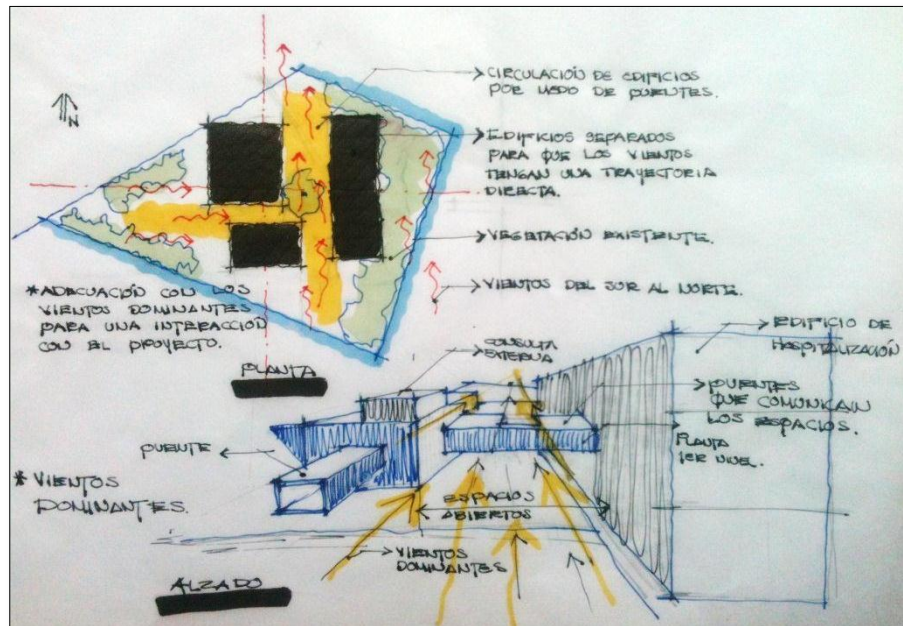 CIRCULACIÓN DE EDIFICIOS
POR MEDIO DE PUENTES.
N
EDIFICIOS SEPARADOS
PARA QUE LOS VIENTOS
TENGAN UNA TRAYECTORIA
DIRECTA.
VEGETACIÓN EXISTENTE.
VIENTOS DEL SUR AL NORTE.
*ADECUACIÓN CON LOS
VIENTOS DOMINANTES
PARA UNA INTERACCIÓN
CON EL PROYECTO.
PLANTA
CONSULTA
EXTERNA
EDIFICIO DE
HOSPITALIZACIÓN
PUENTES
QUE COMUNICAN
LOS ESPACIOS.
PLANTA
1ER NIVEL.
PUENTE
* VIENTOS
DOMINANTES.
ESPACIOS
ABIERTOS
VIENTOS
DOMINANTES
ALZADO